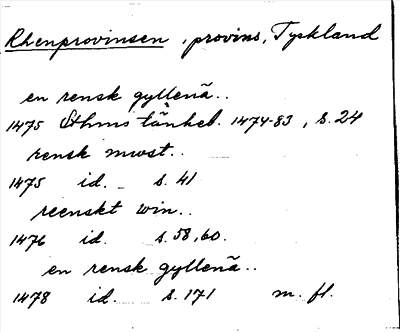 Rhenprovinsen, provins, Tyskland
en rensk gyllenā..
1475 Sthms tänkeb. 1474-83, s. 24
rensk mwst..
1475 id. s. 41
reenskt win..
1476 id. s. 58, 60.
en rensk gyllenā..
1478 id. s. 171 m. fl.